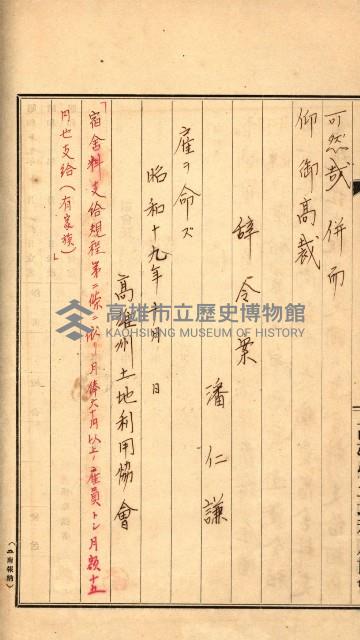 可然哉 併而
仰御高裁
辞令案 潘仁謙
雇ヲ命ズ
昭和十九年 月 日
高雄州土地利用協會
「宿舍料支給規程第二條ニ依リ月俸六十円以上ノ雇員トシ月額十五
円也支給(有家族)」
高雄市立歷史博物館
KAOHSIUNG MUSEUM OF HISTORY